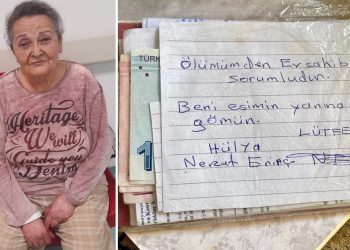 Heritage
We will
Guide you
Denim
TÜRK
1
Ölümümden Ev sahibi
sorumludur.
Beni eşimin yanına
gömün.
LÜTFE
Hülya